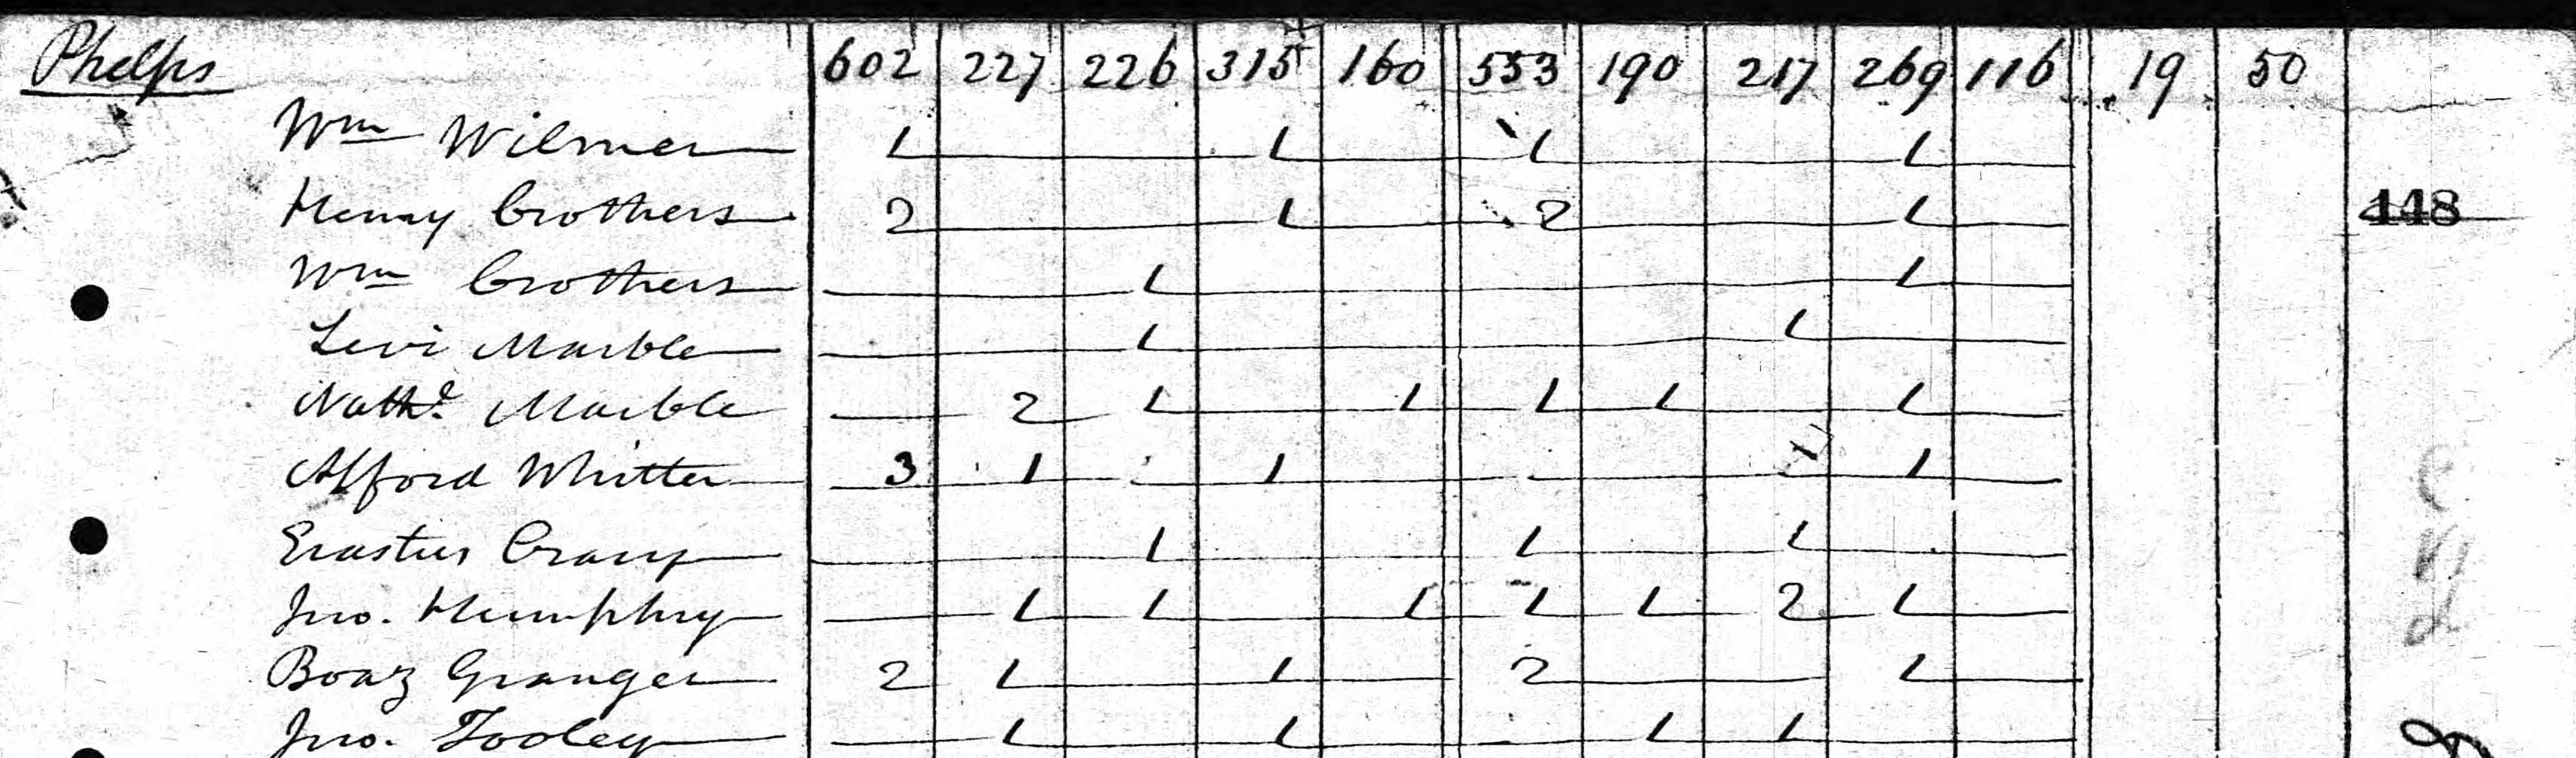 Phelps 602 227 226 315 160 553 190 217 269 116 19 50
Wm Wilmer 1 1 1 1
Henry Crothers 2 1 2 1 448
Wm Crothers 1 1
Levi Marble 1 1
Nathl Marble 2 1 1 1 1 1
Afford Whitter 3 1 1 1
Erastus Crary 1 1 1
Jno. Humphry 1 1 1 1 1 2 1
Boaz Granger 2 1 1 2 1
Jno. Tooley 1 1 1 1